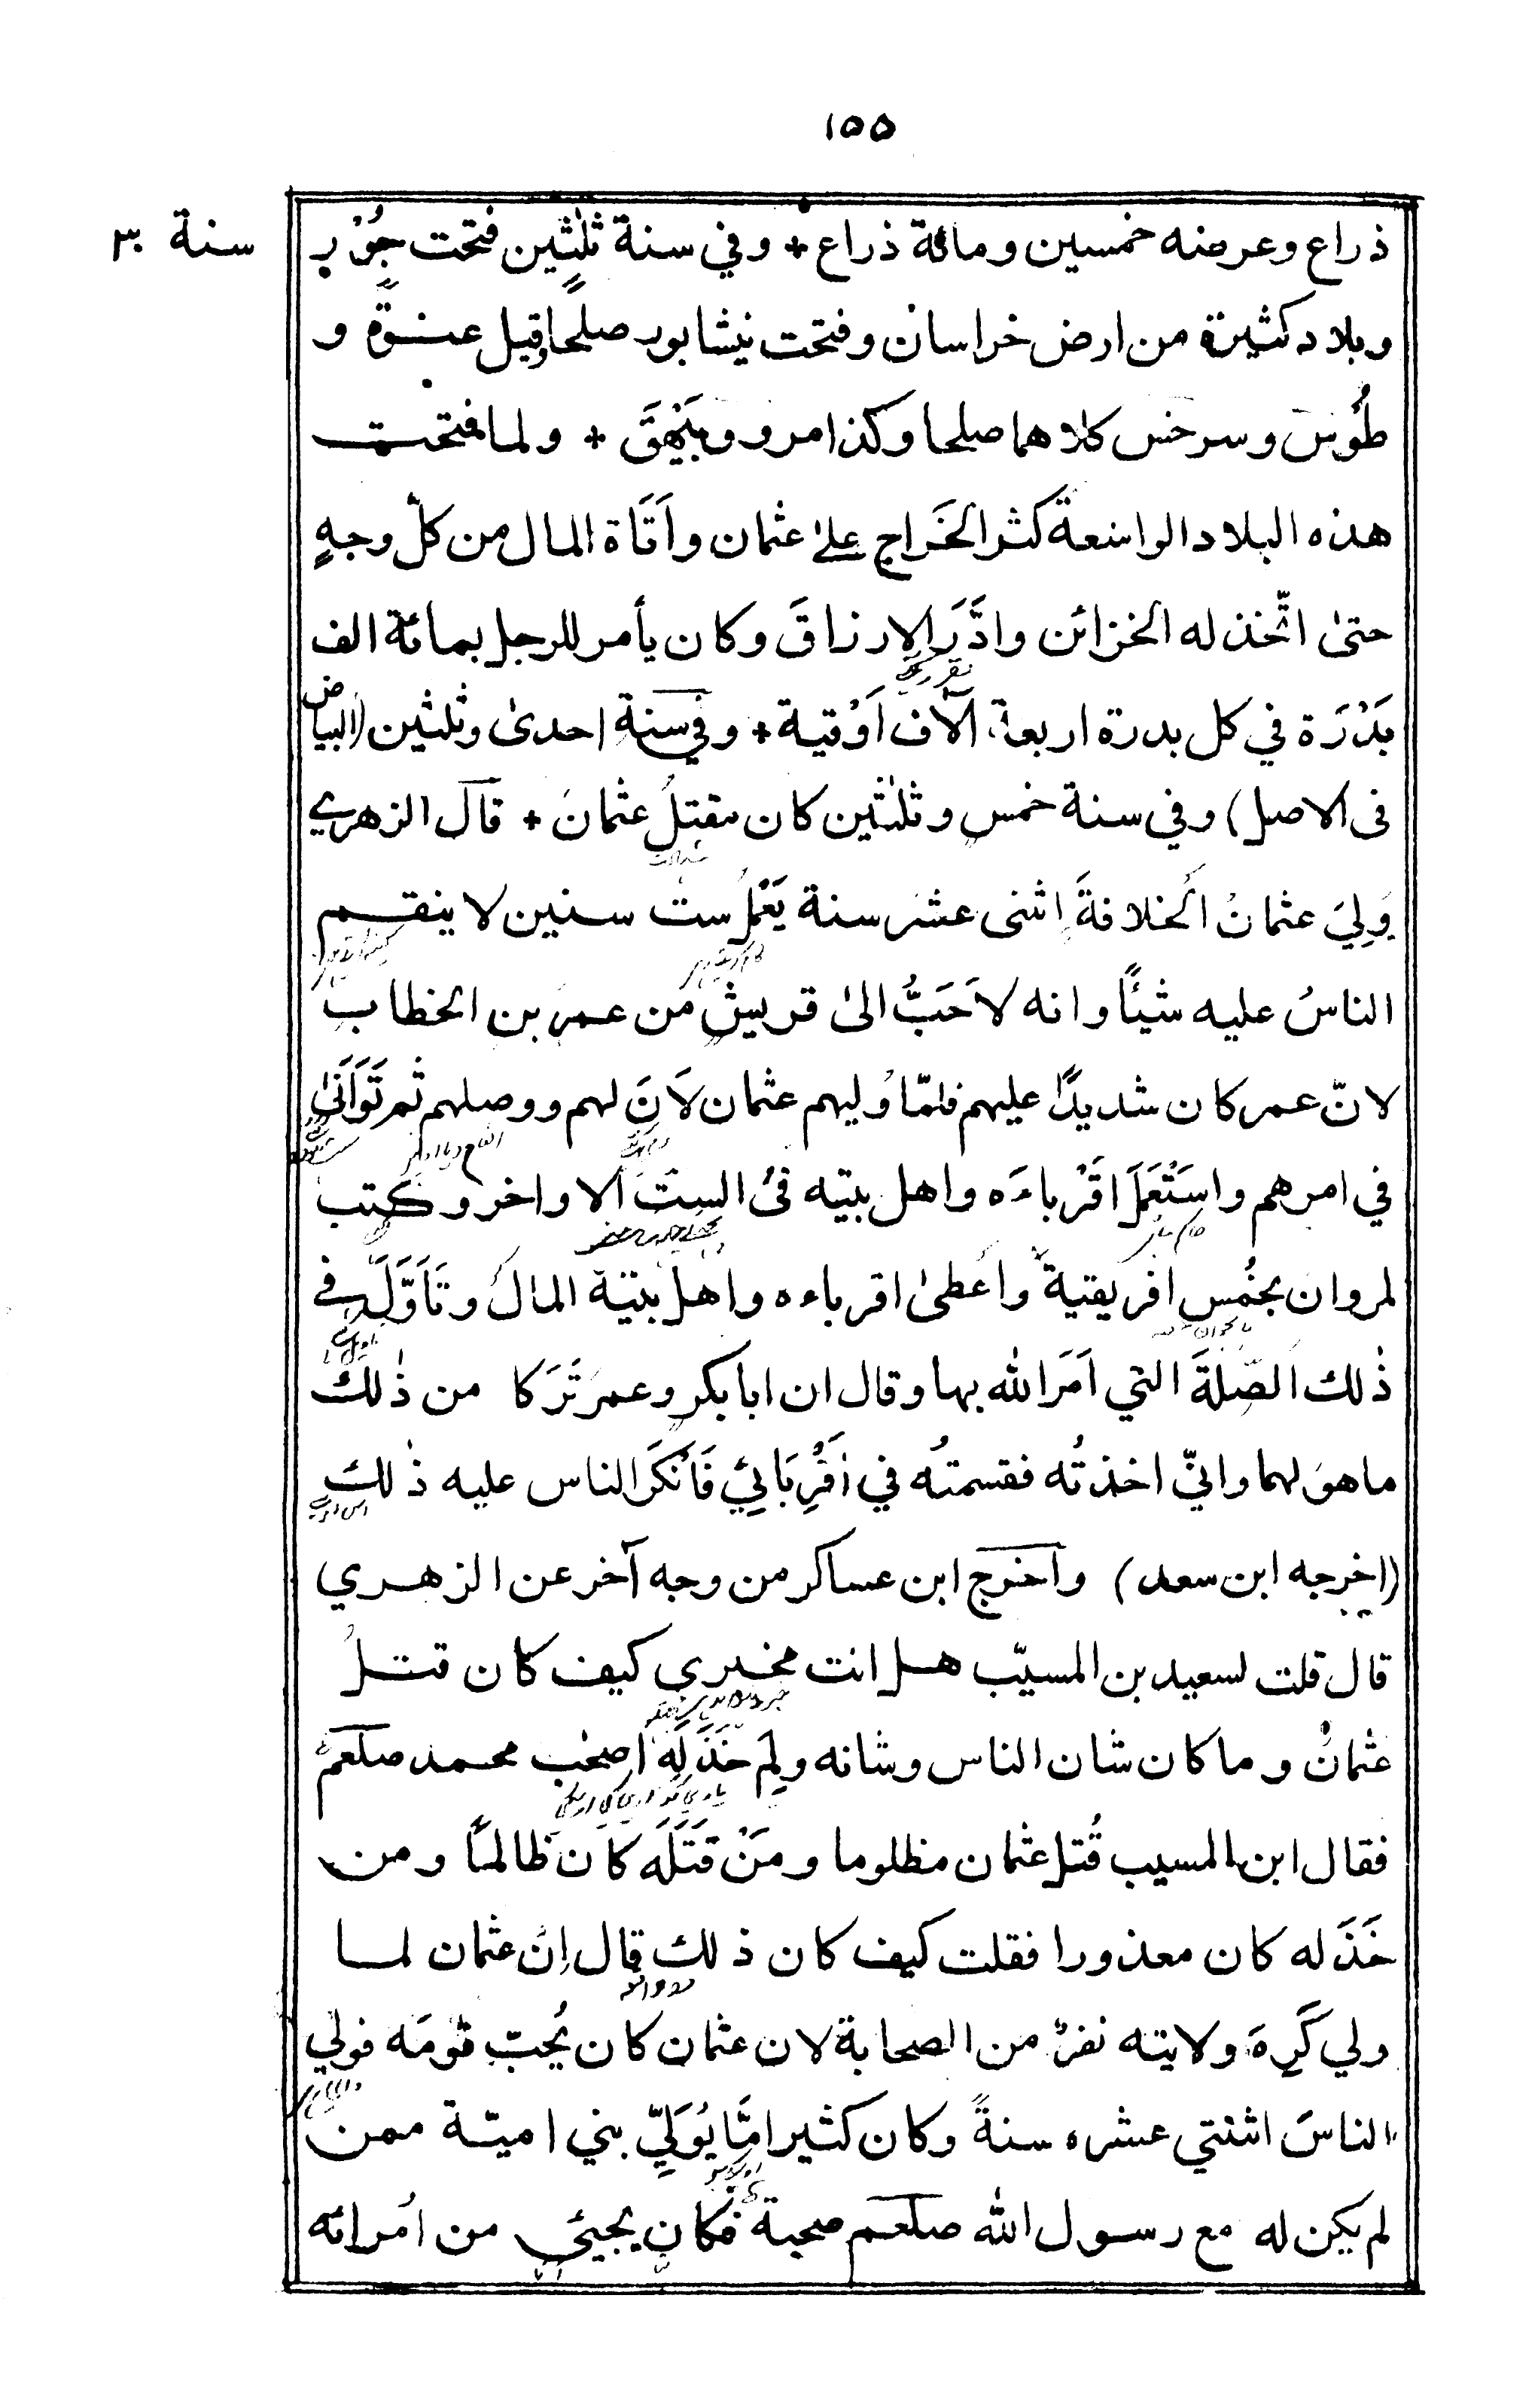 ١٥٥
سنة ٣٠
ذراع وعرضه خمسين ومائة ذراع + وفي سنة ثلٰثين فتحت جُوْر
وبلاد كثيرة من ارض خراسان وفتحت نيشابور صلحا وقيل عنوة و
طُوْس وسرخس كلاهما صلحا وكذا مرو وبَيْهَقَ + ولما فتحت
هذه البلاد الواسعة كثر الخَراج علىٰ عثمان واَتَاة المال من كلّ وجهٍ
حتىٰ اتّخذ له الخزائن وادَّرَ الارزاقَ وكان يأمر للرجل بمائة الف
بَدْرَة في كل بدرة اربعة آلاف اَوْقية + وفي سنة احدىٰ وثلثين (البياض
فى الاصل) وفي سنة خمس وثلٰثين كان مقتلُ عثمانَ + قال الزهري
وَلِيَ عثمانُ الخلافةَ اثنى عشر سنة يَعْمَلُ ست سنين لا ينقم
الناسُ عليه شيئًا وانه لاَحَبُّ الىٰ قريش من عمرَ بن الخطاب
لانّ عمر كان شديدًا عليهم فلمّا وليهم عثمان لاَنَ لهم ووصلهم ثم تَوَانَىٰ
في امرهم واسْتَعْمَلَ اَقْرباءَه واهل بيته فى الست الاواخر وكتب
لمروان بخُمُس افريقية واَعطىٰ اقرباءه واهل بيته المال وتَأوَّلَ في
ذٰلك الصِّلةَ التي اَمَرَ الله بها وقال ان ابا بكر وعمرَ تَرَكا من ذٰلك
ما هو لهما وانيّ اخذتُه فقسمتُه في اَقْرِبَائِي فَاَنْكَرَ الناس عليه ذٰلك
(اخرجه ابن سعد) واخرج ابن عساكر من وجه آخر عن الزهري
قال قلت لسعيد بن المسيّب هل انت مخبري كيف كان قتلُ
عثمانُ وما كان شان الناس وشانه ولِمَ خَذَلَه اصحٰب محمد صلعم
فقال ابن المسيب قُتل عثمان مظلوما ومَنْ قَتَلَه كان ظالمًا ومن
خَذَله كان معذورا فقلت كيف كان ذلك قال اِنّ عثمان لما
ولي كَرِهَ ولايته نفرٌ من الصحابة لان عثمان كان يُحبّ قومَه فولي
الناسَ اثنتي عشره سنةً وكان كثيرا مّا يُوَلّي بني اميّة ممن
لم يكن له مع رسول الله صلعم صحبة فكان يجيئ من اُمرائه